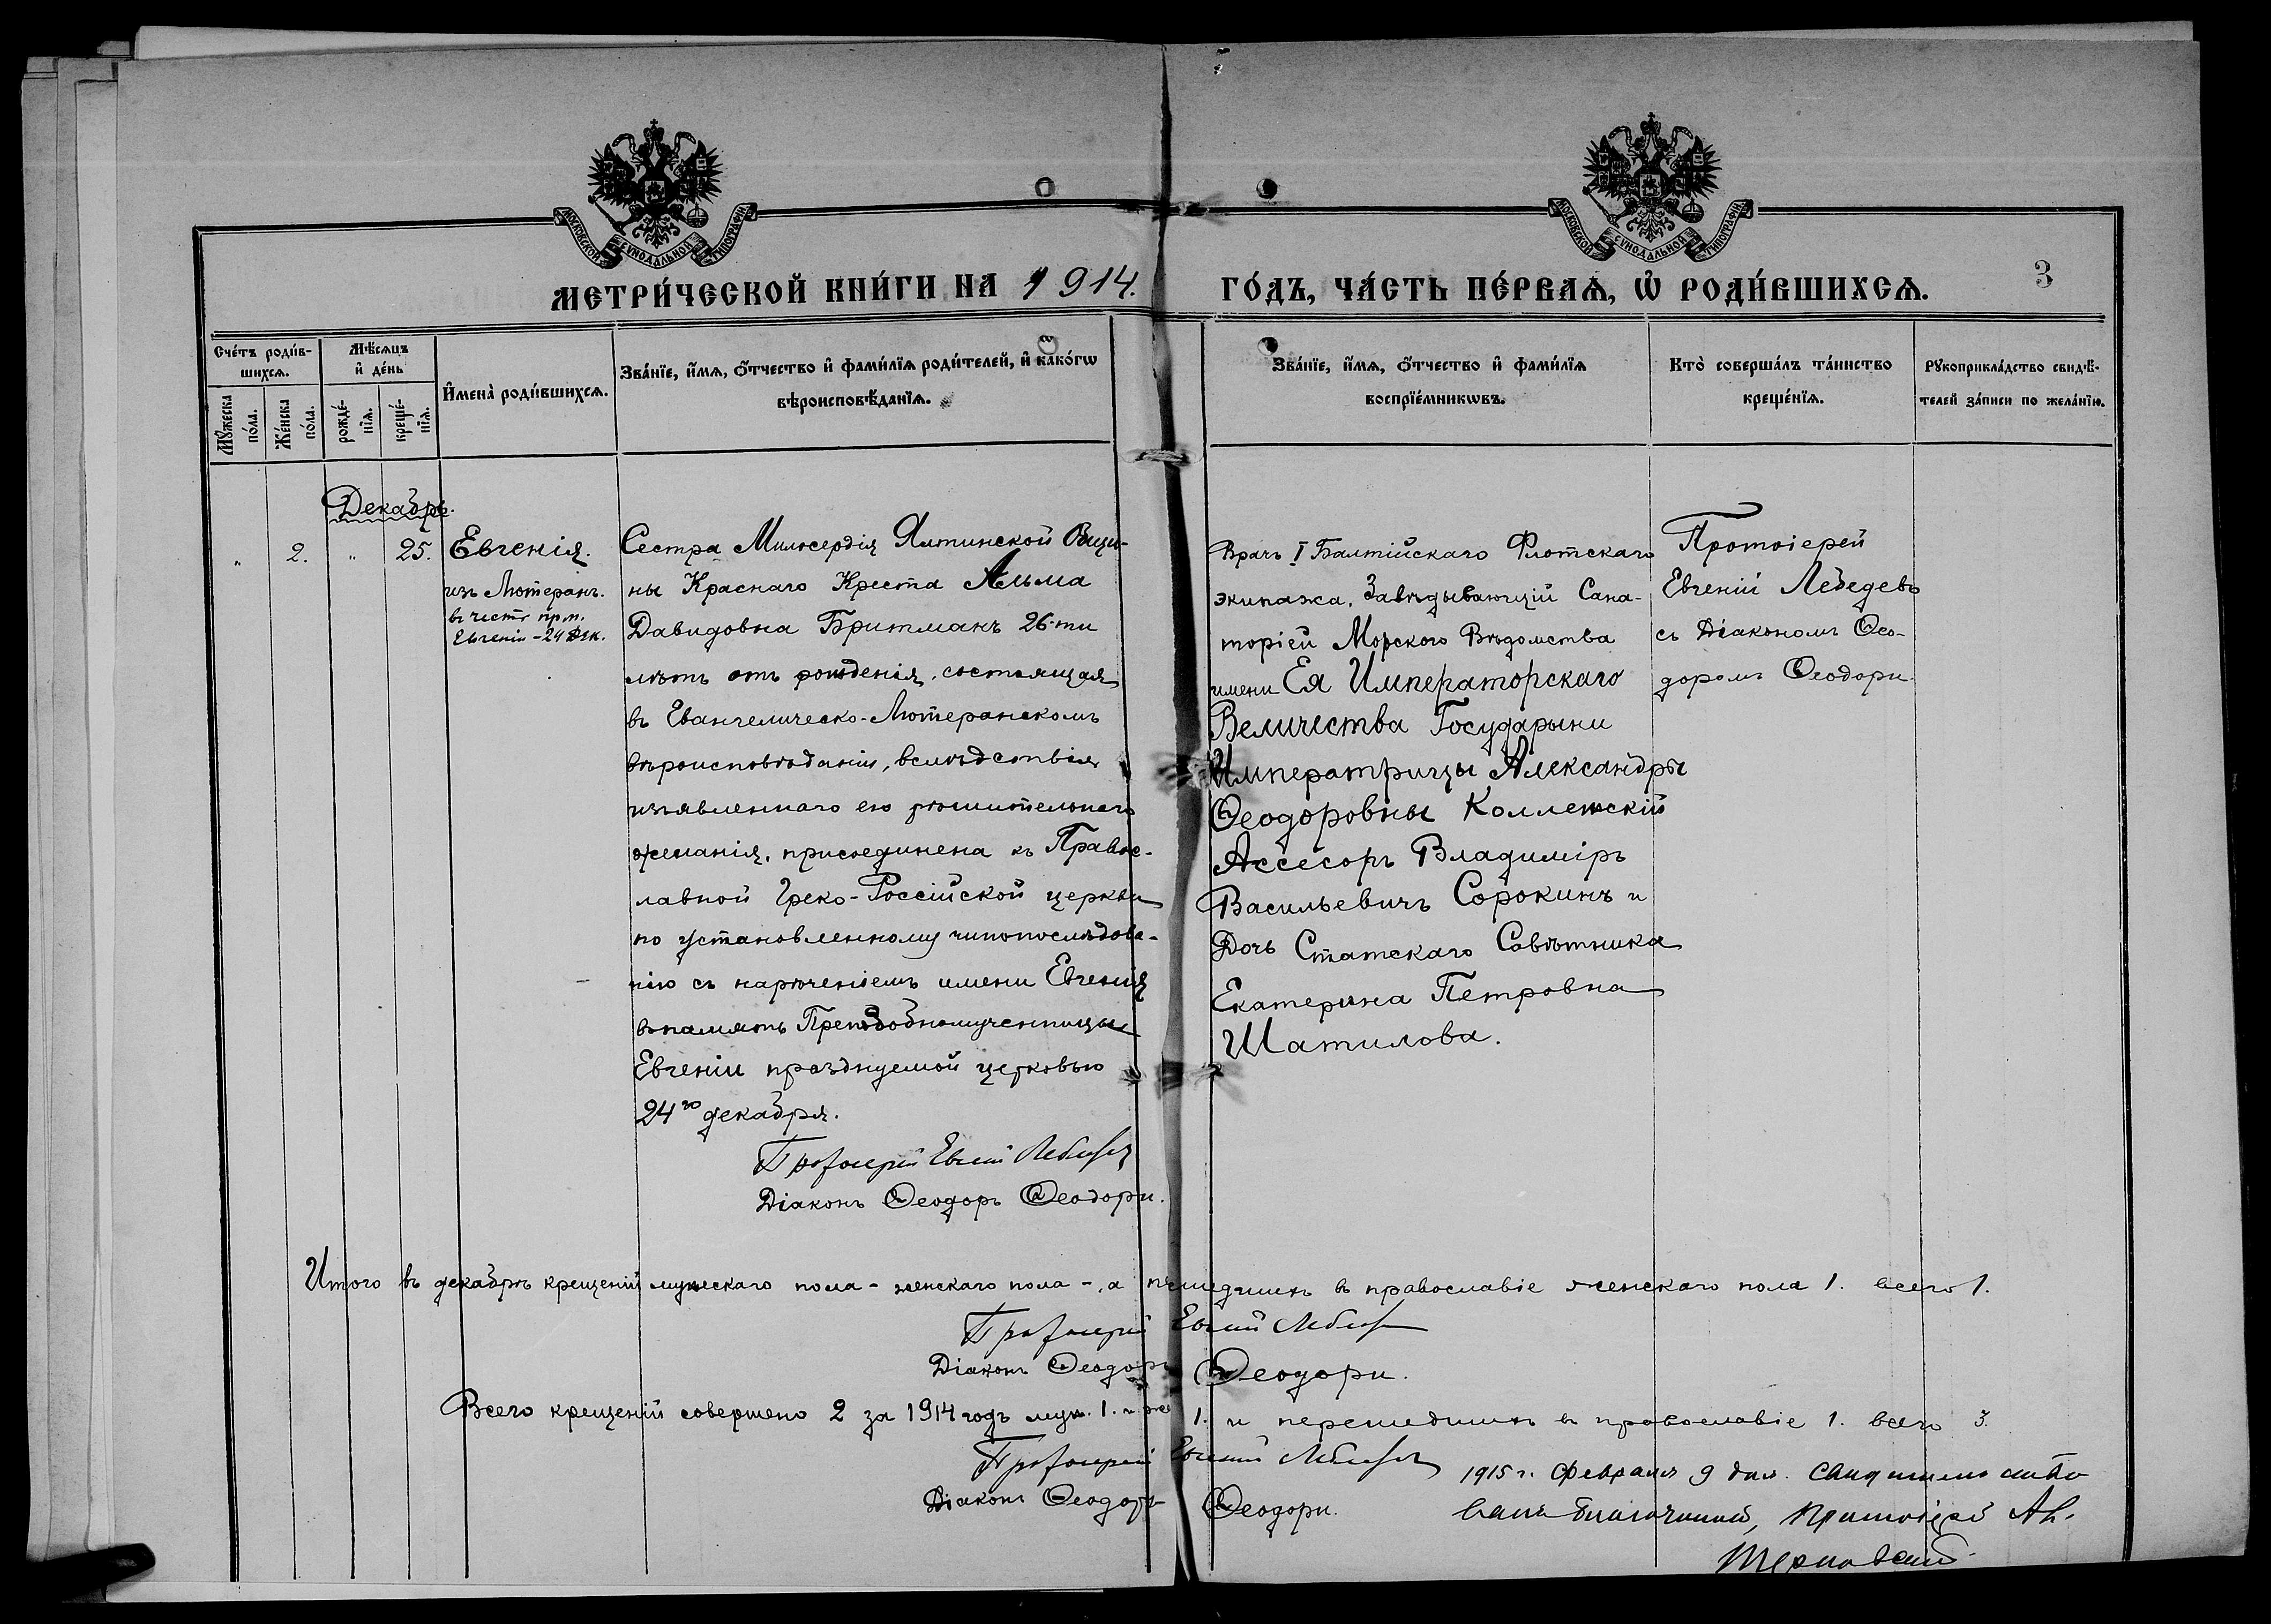 МОСКОВСКОЙ СѴНОДАЛЬНОЙ ТИПОГРАФІИ
МОСКОВСКОЙ СѴНОДАЛЬНОЙ ТИПОГРАФІИ
МЕТРИ́ЧЕСКОЙ КНИ́ГИ НА 1914. ГО́ДЪ, ЧА́СТЬ ПЕ́РВАѦ, Ѡ҆ РОДИ́ВШИХСѦ. 3
Сче́тъ роди́в-
шихсѧ.
Мꙋ́жеска по́ла.
Же́нска по́ла.
Мѣ́сѧцъ и҆ де́нь
рожде́-нїѧ.
креще́-нїѧ.
И҆мена̀ роди́вшихсѧ.
Зва́нїе, и҆́мѧ, ѻ҆́тчество и҆ фами́лїѧ роди́телей, и҆ како́гѡ
вѣроисповѣ́данїѧ.
Зва́нїе, и҆́мѧ, ѻ҆́тчество и҆ фами́лїѧ
воспрїе́мникѡвъ.
Кто̀ соверша́лъ та́инство
креще́нїѧ.
Рꙋкоприкла́дство свидѣ́-
телей за́писи по жела́нїю.
Декабрь.
" 2. " 25. Евгенія.
изъ Лютеранъ.
въ честь прп.
Евгеніи - 24 Дек.
Сестра Милосердія Ялтинской Общи-
ны Краснаго Креста Альма
Давидовна Бритманъ 26-ти
лѣтъ отъ рожденія, состоящая
въ Евангелическо-Лютеранскомъ
вѣроисповѣданіи, вслѣдствіе
изъявленнаго ею рѣшительнаго
желанія, присоединена къ Право-
славной Греко-Россійской церкви
по установленному чинопослѣдова-
нію съ нареченіемъ имени Евгенія
въ память Преподобномученицы
Евгеніи празднуемой церковью
24го декабря.
Протоіерей Евгеній Лебедевъ
Діаконъ Ѳеодоръ Ѳеодори.
Врачъ I Балтійскаго Флотскаго
экипажа, Завѣдывающій Сана-
торіей Морского Вѣдомства
имени Ея Императорскаго
Величества Государыни
Императрицы Александры
Ѳеодоровны Коллежскій
Ассесоръ Владиміръ
Васильевичъ Сорокинъ и
Дочь Статскаго Совѣтника
Екатерина Петровна
Шатилова.
Протоіерей
Евгеній Лебедевъ
съ Діакономъ Ѳео-
доромъ Ѳеодори.
Итого въ декабрѣ крещеній мужескаго пола - женскаго пола -, а перешедшихъ в православіе женскаго пола 1. всего 1.
Протоіерей Евгеній Лебедевъ
Діаконъ Ѳеодоръ Ѳеодори.
Всего крещеній совершено 2 за 1914 годъ муж. 1. и жен 1. и перешедшихъ въ православіе 1. всего 3.
Протоіерей Евгеній Лебедевъ
Діаконъ Ѳеодоръ Ѳеодори.
1915 г. Февраля 9 дня. Свидѣтельство-
валъ благочинный, Протоіерей Ал.
Терновскій